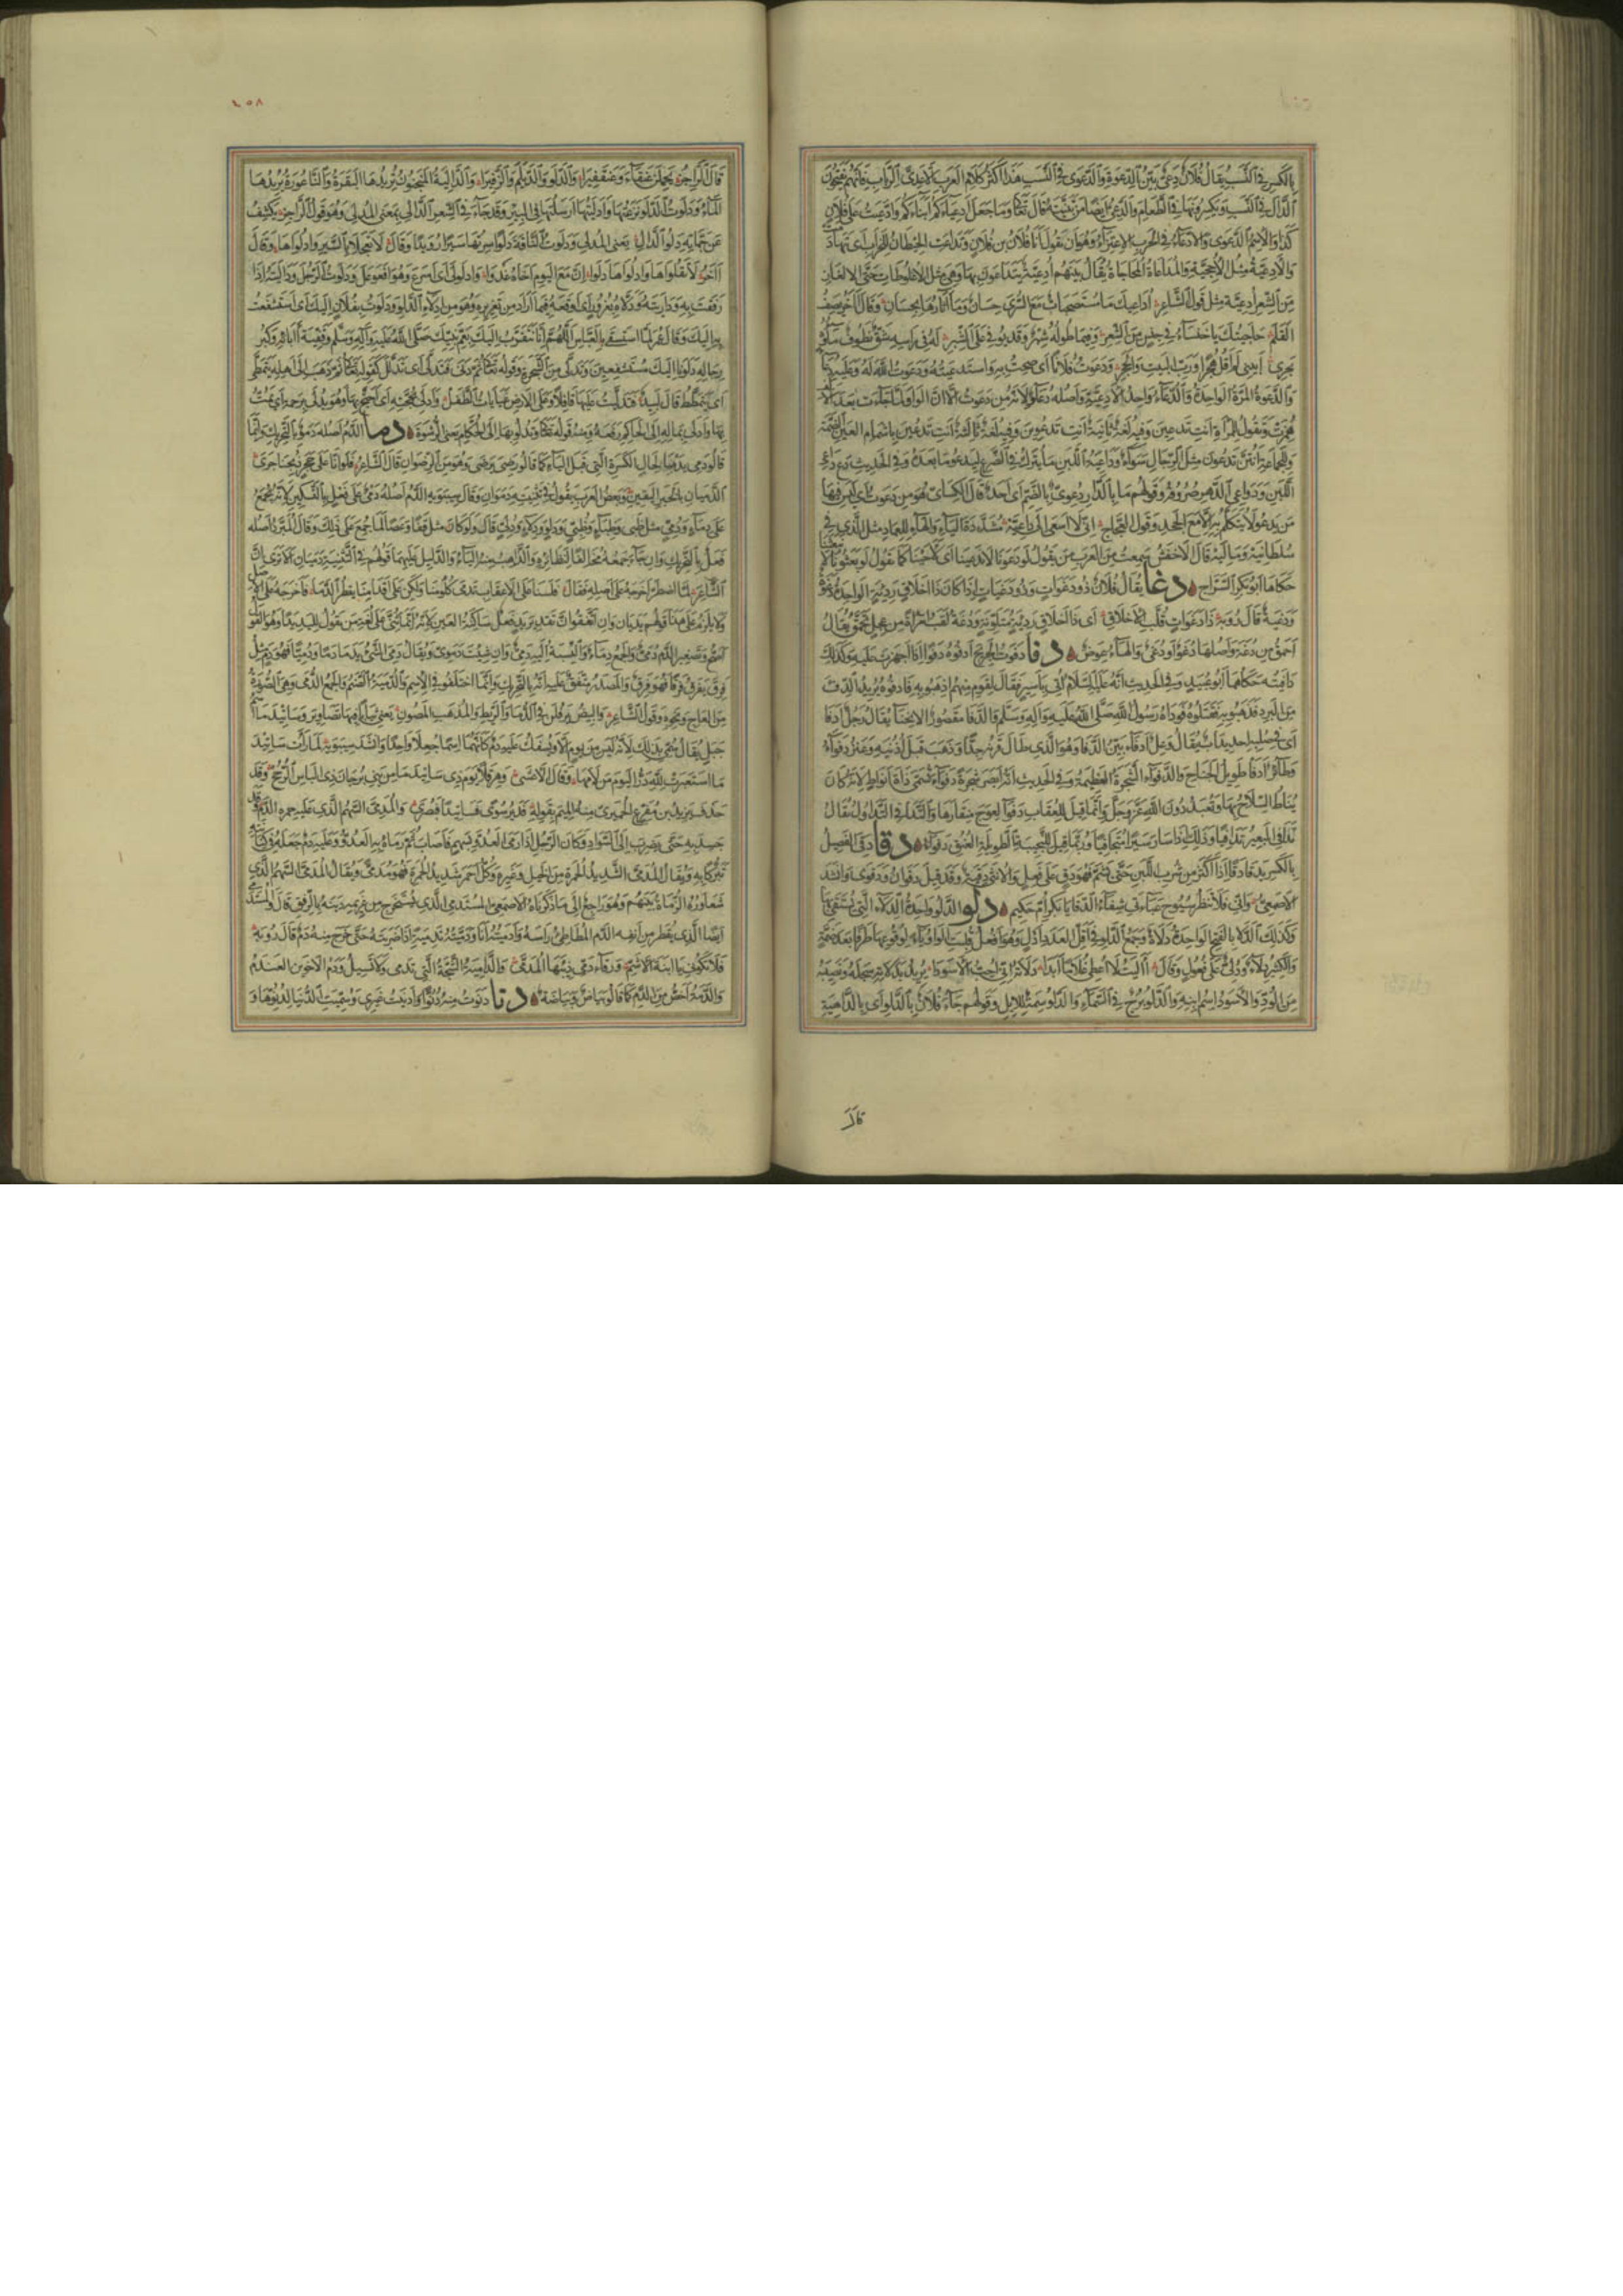 بالكسر في النسب يقال فلان دعي بين الدعوة والدعوى في النسب هذا اكثر كلام العرب الا عدي الرباب فانهم يفتحون
الدال في النسب ويكسرونها في الطعام والدعي ايضا من تبنيته قال تعالى وما جعل ادعياءكم ابناءكم وادعيت على فلان
كذا والاسم الدعوى والادعاء في الحرب الاعتزاء وهو ان تقول انا فلان بن فلان وتداعت الحيطان للخراب اي تهادمت
والادعية مثل الاحجية والمداعاة المحاجاة يقال بينهم ادعية يتداعون بها وهي مثل الاغلوطات حتى الالغاز
من الشعر ادعية مثل قول الشاعر اداعيك ما مستصحبات مع السرى حسان وما اثارها بحسان وقال اخر يصف
القلم حاجيتك يا خنساء في جنس من الشعر وفيما طوله شبر وقد يوفي على الشبر له في راسه شق نطوف ماؤه
يجري ابيني لم اقل هجرا ورب البيت والحجر ودعوت فلانا اي صحت به واستدعيته ودعوت الله له وعليه دعاء
والدعوة المرة الواحدة والدعاء واحد الادعية واصله دعاو لانه من دعوت الا ان الواو لما جاءت بعد الالف
همزت وتقول للمراة انت تدعين وفيه لغة ثانية انت تدعوين وفيه لغة ثالثة انت تدعين باشمام العين الضمة
وللجماعة انتن تدعون مثل الرجال سواء وداعية اللبن ما يترك في الضرع ليدعو ما بعده وفي الحديث دع داعي
اللبن ودواعي الدهر صروفه وقولهم ما بالدار دعوي بالضم اي احد قال الكسائي هو من دعوت اي ليس فيها
من يدعو لا يتكلم به الا مع الجحد وقول العجاج اني لا اسعى الى داعيه مشددة الياء والهاء للعماد مثل الذي في
سلطانيه وماليه قال الاخفش سمعت من العرب من يقول لو دعونا لاندعينا اي لاجبنا كما تقول لو بعثونا لانبعثنا
حكاها ابو بكر السراج دغا يقال فلان ذو دغوات وذو دغيات اذا كان ذا اخلاق رديئة الواحدة دغوة
ودغية قال رؤبة ذا دغوات قلب الاخلاق اي ذا اخلاق رديئة متلونة ودغة لقب امراة من عجل تحمق يقال
احمق من دغة واصلها دغو او دغي والهاء عوض دفا دفوت الجريح ادفوه دفوا اذا اجهزت عليه وكذلك
دافيته حكاهما ابو عبيد وفي الحديث انه عليه السلام اتي باسير فقال لقوم منهم اذهبوا به فادفوه يريد الدفء
من البرد فذهبوا به فقتلوه فوداه رسول الله صلى الله عليه وآله وسلم والدفا مقصور الانحناء يقال رجل ادفا
اي في صلبه احديداب يقال وعل ادفا بين الدفا وهو الذي طال قرنه جدا وذهب قبل اذنيه وعنز دفواء
وطائر ادفا طويل الجناح والدفواء الشجرة العظيمة وفي الحديث انه ابصر شجرة دفواء تسمى ذات انواط لانه كان
يناط السلاح بها وتعبد دون الله عز وجل وانما قيل للعقاب دفواء لعوج منقارها والتدافي التداول يقال
تدافى البعير تدافيا وذلك اذا سار سيرا متجافيا وربما قيل للنجيبة الطويلة العنق دفواء دقا دقي الفصيل
بالكسر يدقى دقا اذا اكثر من شرب اللبن حتى بشم فهو دق على فعل والانثى دقية وقد قيل دقوان ودقوى وانشد
الاصمعي واني فلا تنظر سيوح عباءتي شفاء الدقى يا بكر ام حكيم دلو الدلو واحدة الدلاء التي يستقى بها
وكذلك الدلا بالفتح الواحدة دلاة وجمع الدلو في اقل العدد ادل وهو افعل قلبت الواو ياء لوقوعها طرفا بعد ضمة
والكثير دلاء ودلي على فعول وقال آليت لا اعطي غلاما ابدا دلاته اني احب الاسودا يريد بدلاته سجله ونصيبه
من الود والاسود اسم ابنه والدلو برج في السماء والدلو سمة للابل وقولهم جاء فلان بالدلو اي بالداهية
قال
٤٥٨
قال الراجز يحملن عنقاء وعنقفيرا والدلو والديلم والزفيرا والدالية المنجنون تديرها البقرة والناعورة يديرها
الماء ودلوت الدلو نزعتها وادليتها ارسلتها في البئر وقد جاء في الشعر الدالي بمعنى المدلي وهو قول الراجز يكشف
عن جماته دلو الدال يعني المدلي ودلوت الناقة دلوا سيرتها سيرا رويدا وقال لا تعجلا بالسير وادلواها وقال
آخر لا تقلواها وادلواها دلوا ان مع اليوم اخاه غدوا وادلولى اي اسرع وهو افعوعل ودلوت الرجل وداليته اذا
رفقت به وداريته ودلاه بغرور اي اوقعه فيما اراد من تغريره وهو من ادلاء الدلو ودلوت بفلان اليك اي استشفعت
به اليك وقال عمر لما استسقى بالعباس اللهم انا نتقرب اليك بعم نبيك صلى الله عليه وآله وسلم وقفية آبائه وكبر
رجاله دلونا به اليك مستشفعين وتدلى من الشجرة وقوله تعالى ثم دنى فتدلى اي تدلل كقوله تعالى ثم ذهب الى اهله يتمطى
اي يتمطط قال لبيد فتدليت عليها قافلا وعلى الارض غيايات الطفل وادلى بحجته اي احتج بها وهو يدلي برحمه اي يمت
بها وادلى بماله الى الحاكم رفعه ومنه قوله تعالى وتدلوا بها الى الحكام يعني الرشوة دما الدم اصله دمو بالتحريك وانما
قالوا دمي يدمى لحال الكسرة التي قبل الياء كما قالوا رضي يرضى وهو من الرضوان قال الشاعر فلو انا على حجر ذبحنا جرى
الدميان بالخبر اليقين وبعض العرب يقول في تثنيته دموان وقال سيبويه الدم اصله دمي على فعل بالتسكين لانه يجمع
على دماء ودمي مثل ظبي وظباء وظبي ودلو ودلاء ودلي قال ولو كان مثل قفا وعصا لما جمع على ذلك وقال المبرد اصله
فعل بالتحريك وان جاء جمعه مخالفا لنظائره والذاهب منه الياء والدليل عليها قولهم في تثنيته دميان الا ترى ان
الشاعر لما اضطر اخرجه على اصله فقال فلسنا على الاعقاب تدمى كلومنا ولكن على اقدامنا يقطر الدما فاخرجه على الاصل
ولا يلزم على هذا قولهم يديان وان اتفقوا ان تقدير يد فعل ساكنة العين لانه انما ثني على لغة من يقول لليد يدا وهو القول
اصح وتصغير الدم دمي والجمع دماء والنسبة اليه دمي وان شئت دموي ويقال دمي الشيء يدمى دما ودميا فهو دم مثل
فرق يفرق فرقا فهو فرق والمصدر متفق عليه انه بالتحريك وانما اختلفوا في الاسم والدمية الصنم والجمع الدمى وهي الصورة
من العاج ونحوه وقول الشاعر والبيض يرفلن في الدما والريط والمذهب المصون يعني ثيابا فيها تصاوير وساتيدما
جبل يقال سمي بذلك لانه ليس من يوم الا ويسفك عليه دم كانهما اسما جعلا واحدا وانشد سيبويه لما رات ساتيدما
استعبرت لله در اليوم من لامها وقال الاعشى وهرقلا يوم ذي ساتيدما من بني برجان ذي الباس الرجح وقد
حذف يزيد بن مفرغ الحميري منه الميم بقوله فدير سوى فساتيدا فبصرى والمدمى السهم الذي عليه حمرة الدم وقد
جسد به حتى يضرب الى السواد وكان الرجل اذا رمى العدو بسهم فاصاب ثم رماه به العدو وعليه دم جعله في كنانته
تبركا به ويقال المدمى الشديد الحمرة من الخيل وغيره وكل احمر شديد الحمرة فهو مدمى ويقال المدمى السهم الذي
يتعاوره الرماة بينهم وهو راجع الى ما ذكرناه الاصمعي المستدمي الذي يستخرج من غريمه دينه بالرفق قال والمستدمي
ايضا الذي يقطر من انفه الدم المطاطئ راسه وادميته انا ودميته تدمية اذا ضربته حتى خرج منه دم قال رؤبة
فلا تكوني يا ابنة الاشم ورقاء دمى ذئبها المدمي والدامية الشجة التي تدمى ولا تسيل ودم الاخوين العندم
والدمة اخص من الدم كما قالوا بياض وبياضة دنا دنوت منه دنوا وادنيت غيري وسميت الدنيا لدنوها و